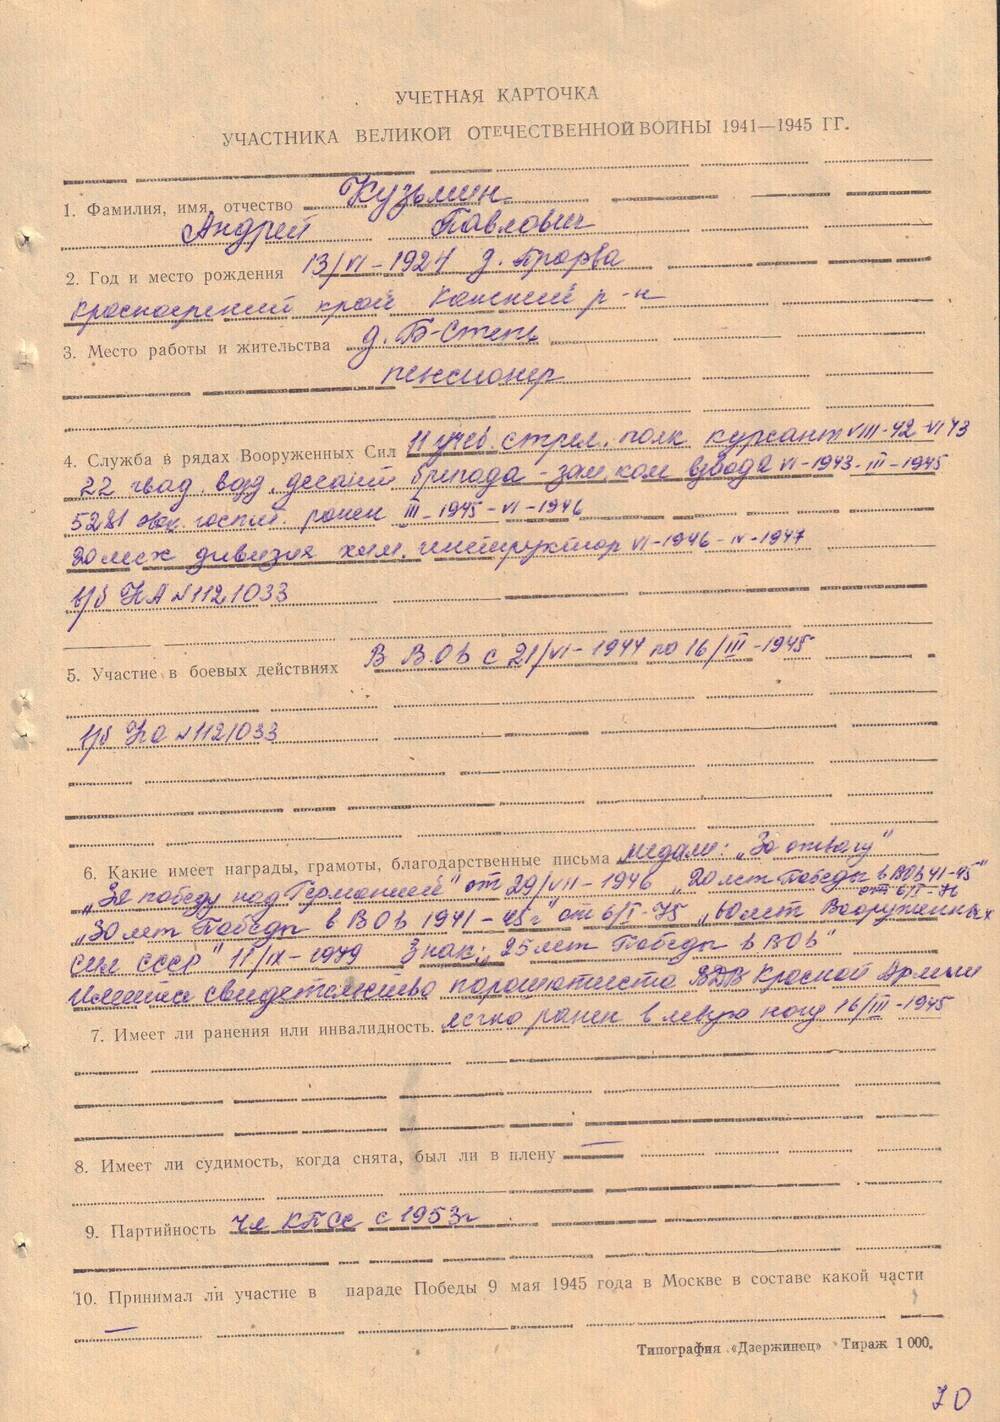 УЧЕТНАЯ КАРТОЧКА
УЧАСТНИКА ВЕЛИКОЙ ОТЕЧЕСТВЕННОЙ ВОЙНЫ 1941—1945 ГГ.
1. Фамилия, имя, отчество Кузьмин
Андрей Павлович
2. Год и место рождения 13/VI-1924 д. Прорва
Красноярский край Канский р-н
3. Место работы и жительства д. Б-Степь
пенсионер
4. Служба в рядах Вооруженных Сил 11 учеб. стрел. полк курсант VIII-42 VI 43
22 гвад. возд. десант бригада - зам. ком взвода VI-1943-III-1945
5281 эвак. госпит. ранен III-1945-VI-1946
20 мех дивизия хим. инструктор VI-1946-IV-1947
в/б НА №1121033
5. Участие в боевых действиях В ВОВ с 21/VI-1944 по 16/III-1945
в/б НА №1121033
6. Какие имеет награды, грамоты, благодарственные письма медали: „За отвагу"
„За победу над Германией" от 29/VII-1946 „20 лет Победы в ВОВ 41-45"
от 6/I-76
„30 лет Победы в ВОВ 1941-45г" от 6/I-75 „60 лет Вооруженных
сил СССР" 11/IX-1979 Знак: „25 лет Победы в ВОВ"
Имеет свидетельство парашютиста ВДВ Красной Армии
7. Имеет ли ранения или инвалидность. легко ранен в левую ногу 16/III-1945
8. Имеет ли судимость, когда снята, был ли в плену —
9. Партийность чл КПСС с 1953г
10. Принимал ли участие в параде Победы 9 мая 1945 года в Москве в составе какой части
—
Типография «Дзержинец» Тираж 1 000.
70